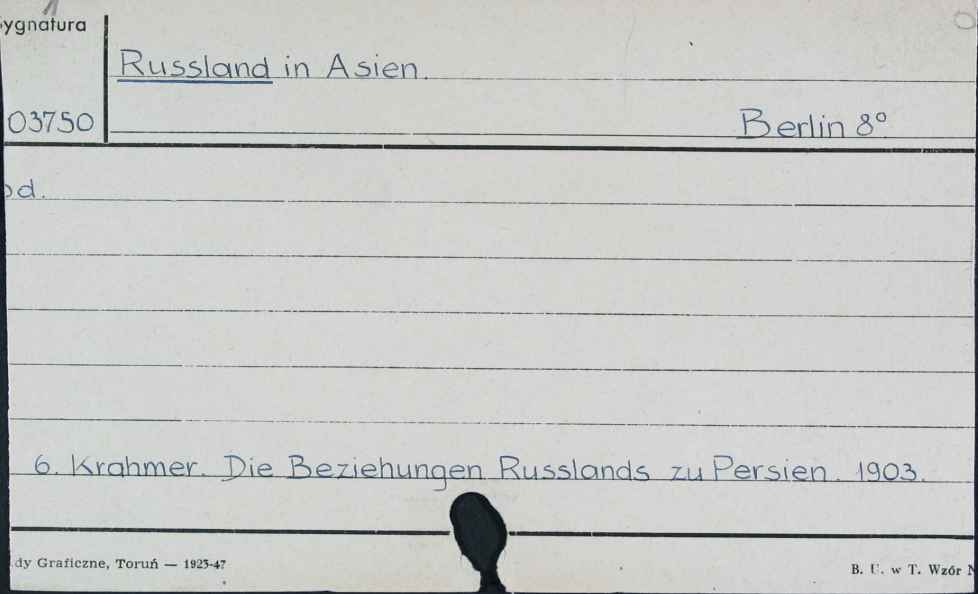 ygnatura
Russland in Asien.
03750
Berlin 8°.
od.
6. Krahmer. Die Beziehungen Russlands zu Persien. 1903.
dy Graficzne, Toruń — 1923-47
B. U. w T. Wzór N